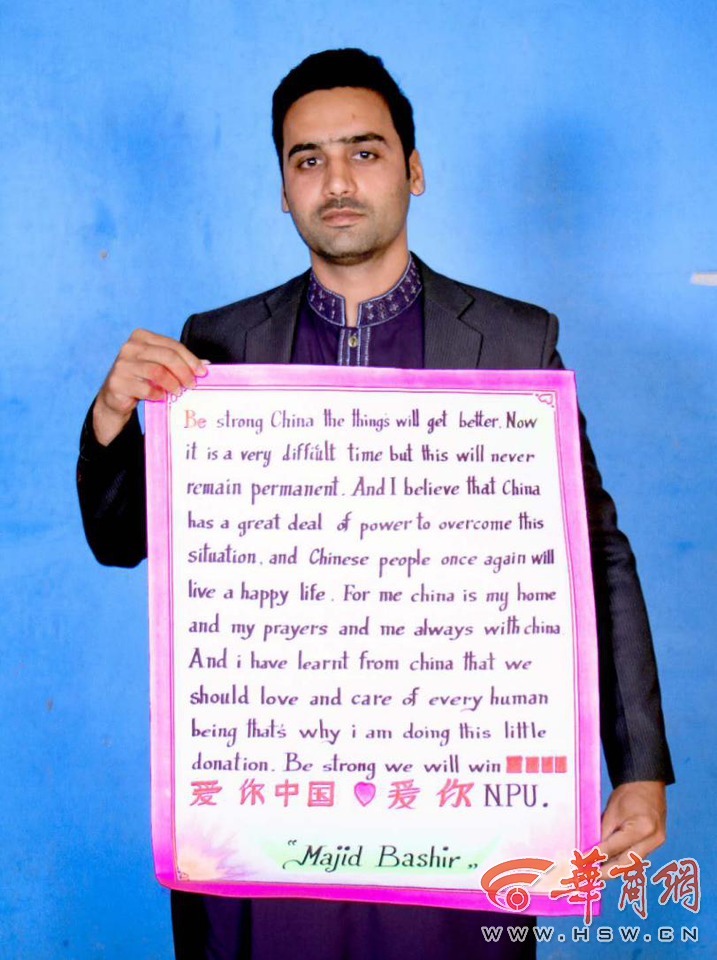 Be strong China the things will get better. Now
it is a very difficult time but this will never
remain permanent. And I believe that China
has a great deal of power to overcome this
situation. and Chinese people once again will
live a happy life. For me china is my home
and my prayers and me always with china
And i have learnt from china that we
should love and care of every human
being that's why i am doing this little
donation. Be strong we will win
爱你中国 爱你 N.P.U.
"Majid Bashir"
華商網
WWW.HSW.CN